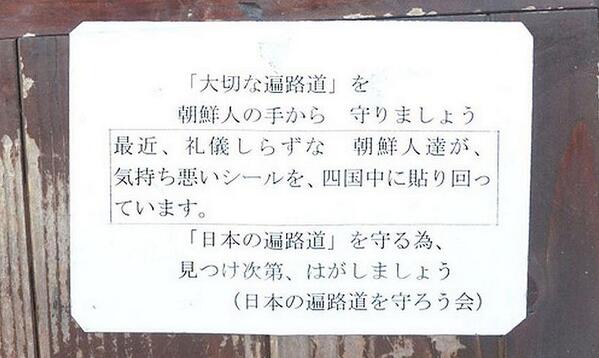 「大切な遍路道」を
朝鮮人の手から　守りましょう
最近、礼儀しらずな　朝鮮人達が、
気持ち悪いシールを、四国中に貼り回っ
ています。
「日本の遍路道」を守る為、
見つけ次第、はがしましょう
（日本の遍路道を守ろう会）